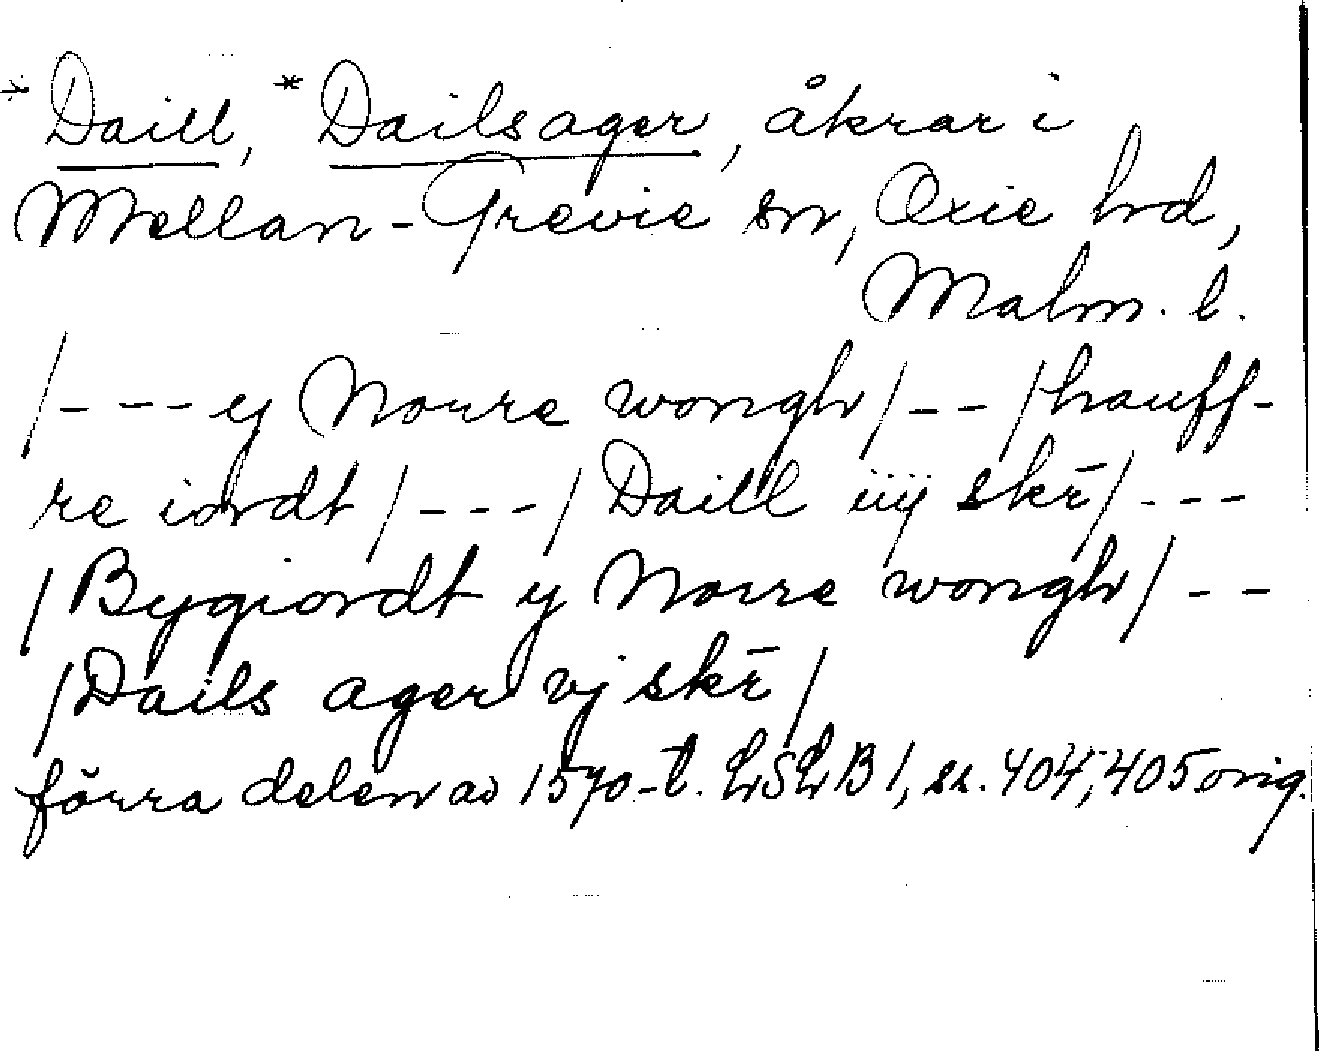 *Daill, *Dailsager, åkrar i
Mellan-Grevie sn, Oxie hd,
Malm. l.
/--- y Norre wongh/--/hauff-
re iordt/---/Daill iiij skr̄/---
/Bygiordt y Norre wongh/--
/Dails ager vj skr̄/
förra delen av 1570-t. LSLB 1, ss. 404, 405 orig.